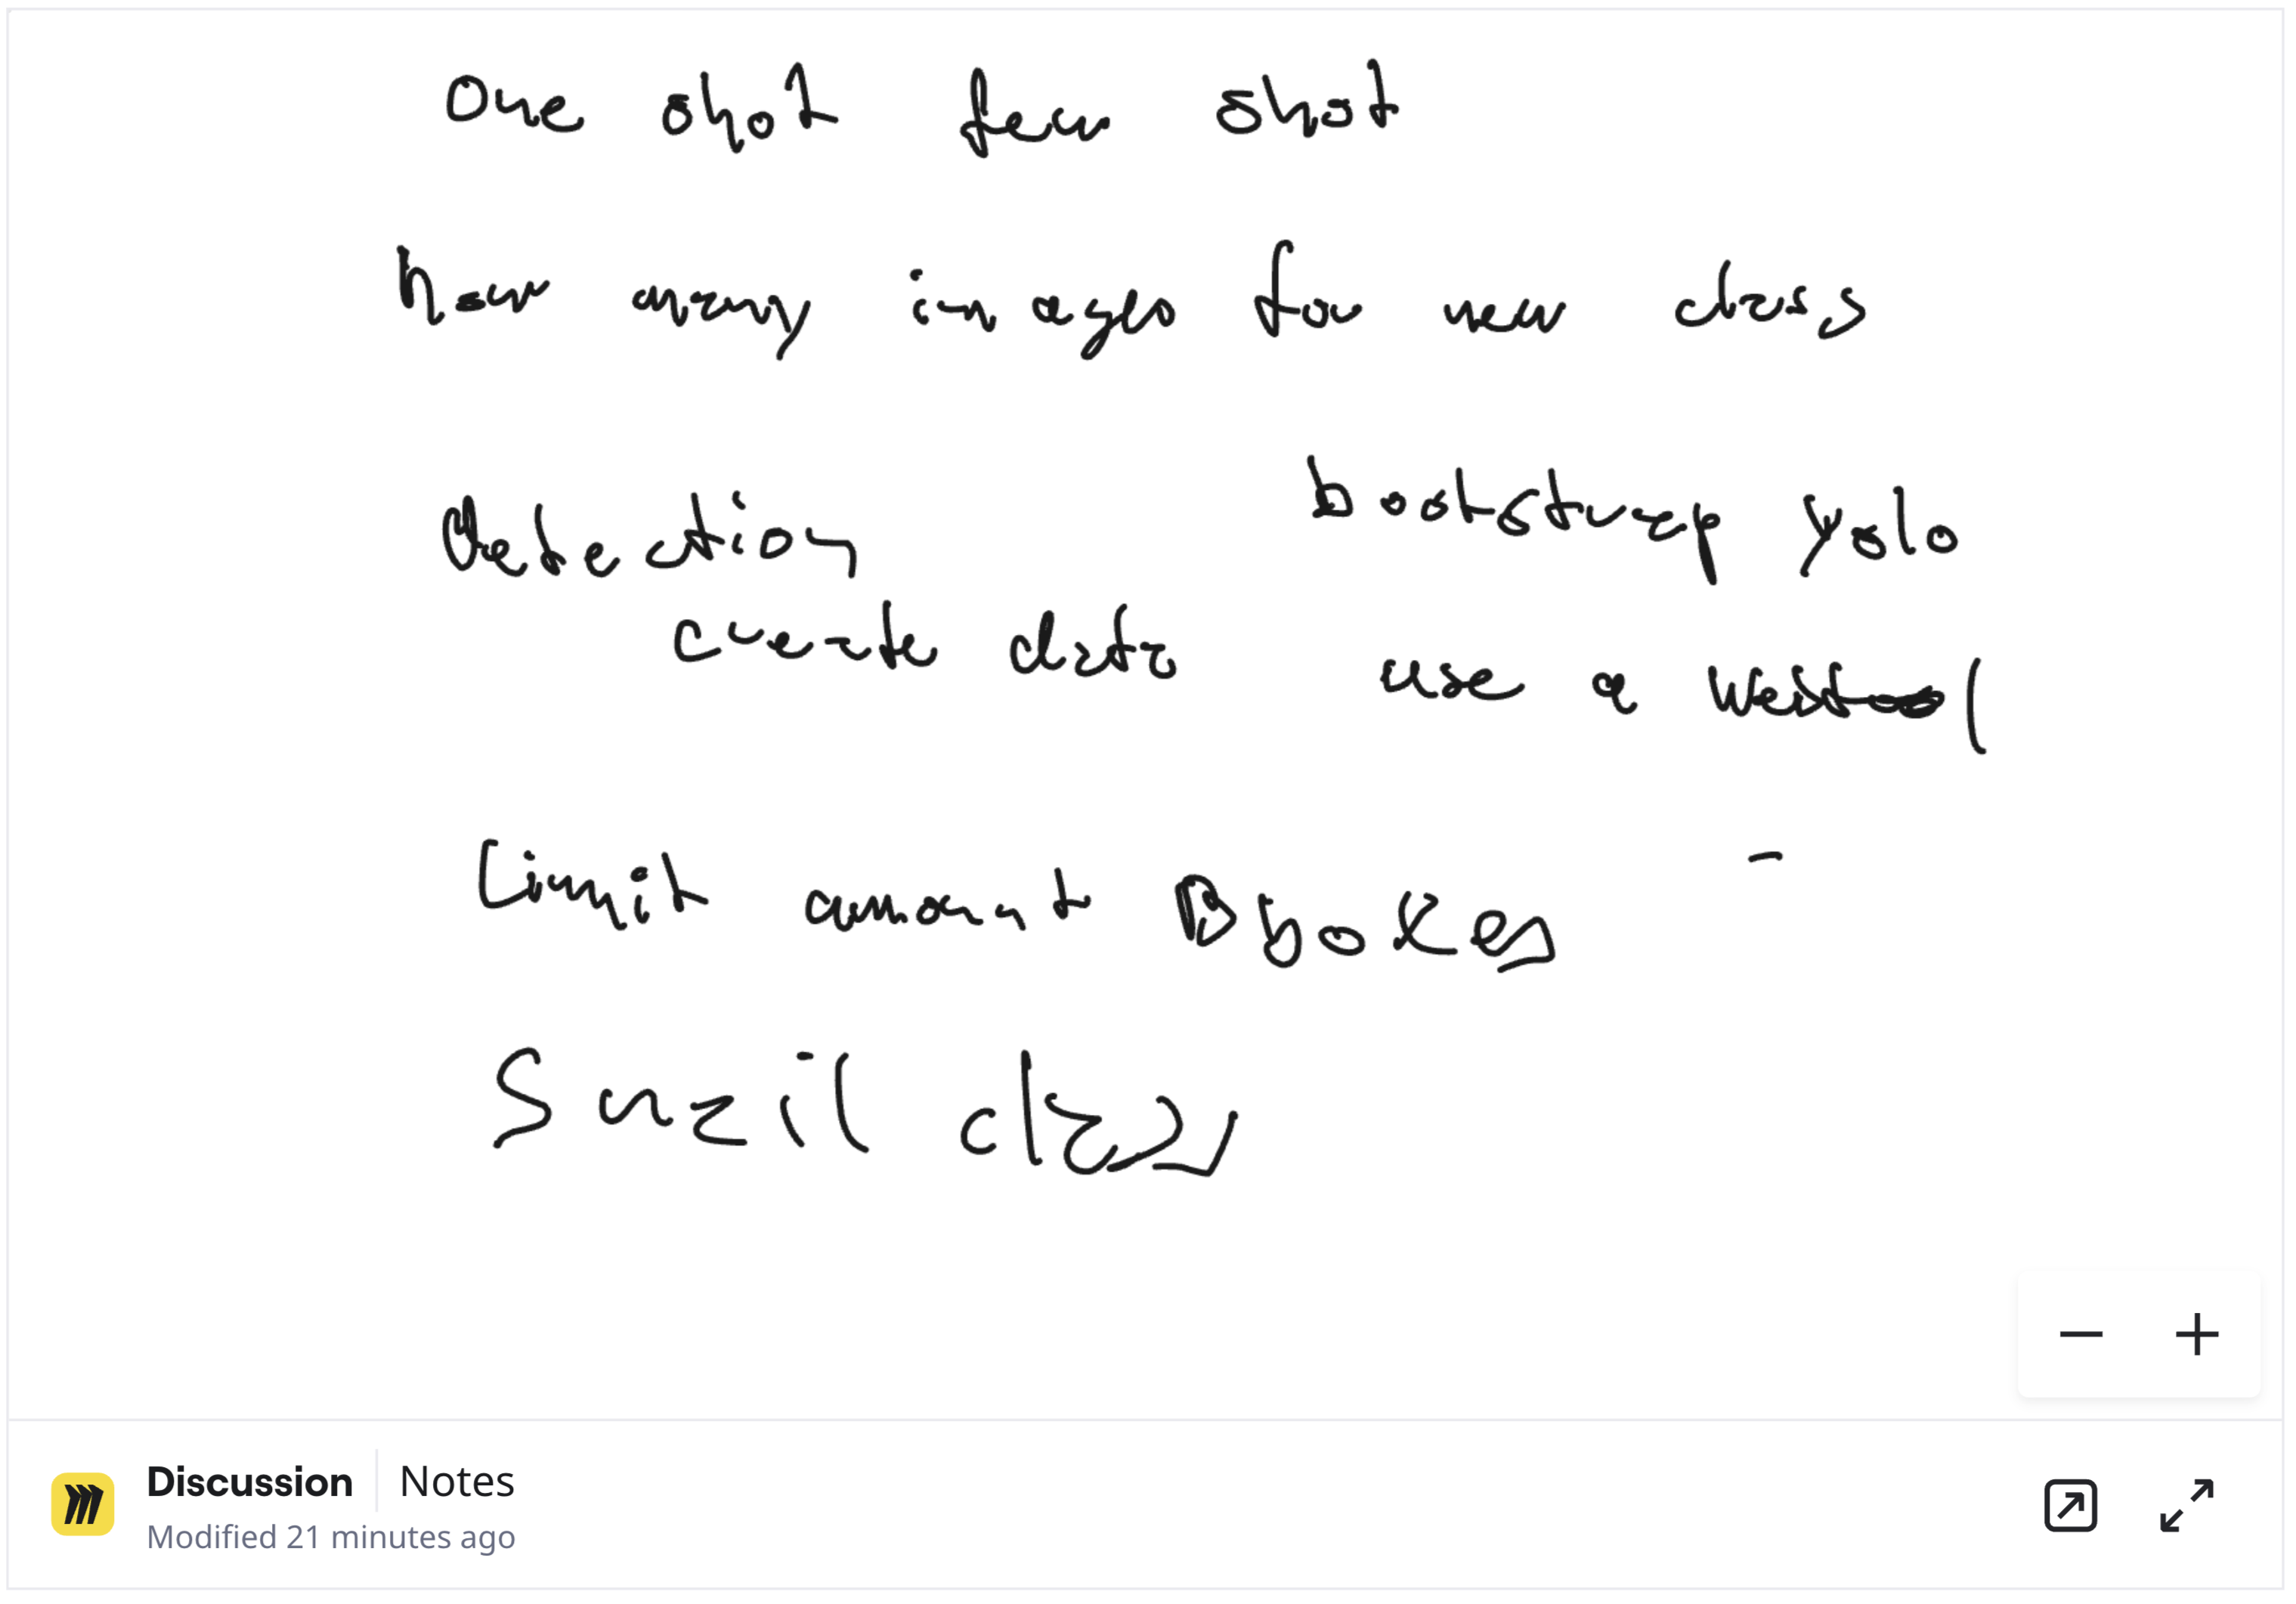 One shot few shot
how many images for new class
detection
bootstrap yolo
create data
use a
Limit amount Bboxes
Snail class
Discussion | Notes
Modified 21 minutes ago